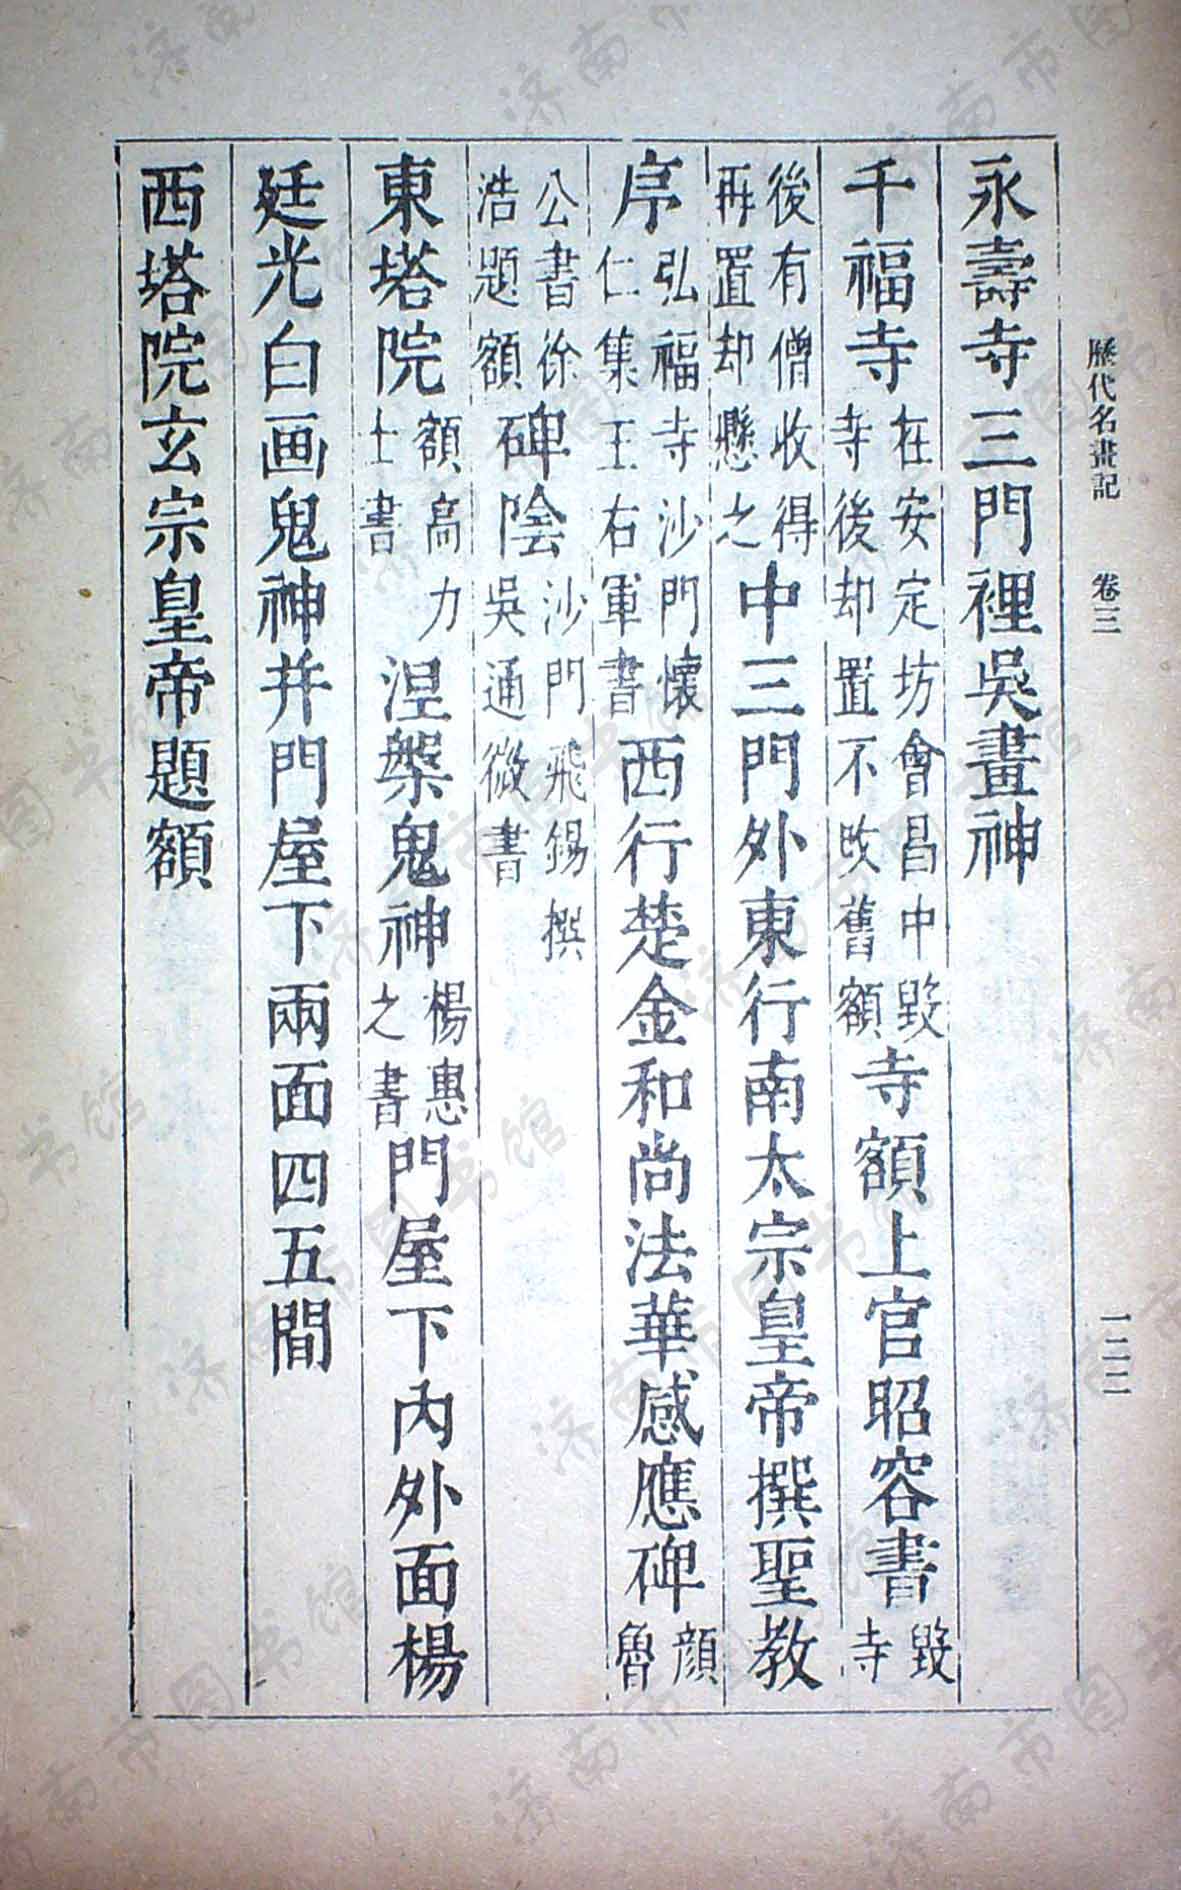 歷代名畫記 卷三 一二二
永壽寺三門裡吳畫神
千福寺在安定坊會昌中毀寺後却置不改舊額寺額上官昭容書毀寺
後有僧收得再置却懸之中三門外東行南太宗皇帝撰聖教
序弘福寺沙門懷仁集王右軍書西行楚金和尚法華感應碑顏魯
公書徐浩題額碑陰沙門飛錫撰吳通微書
東塔院額高力士書涅槃鬼神楊惠之書門屋下內外面楊
廷光白画鬼神并門屋下兩面四五間
西塔院玄宗皇帝題額
济南市图书馆